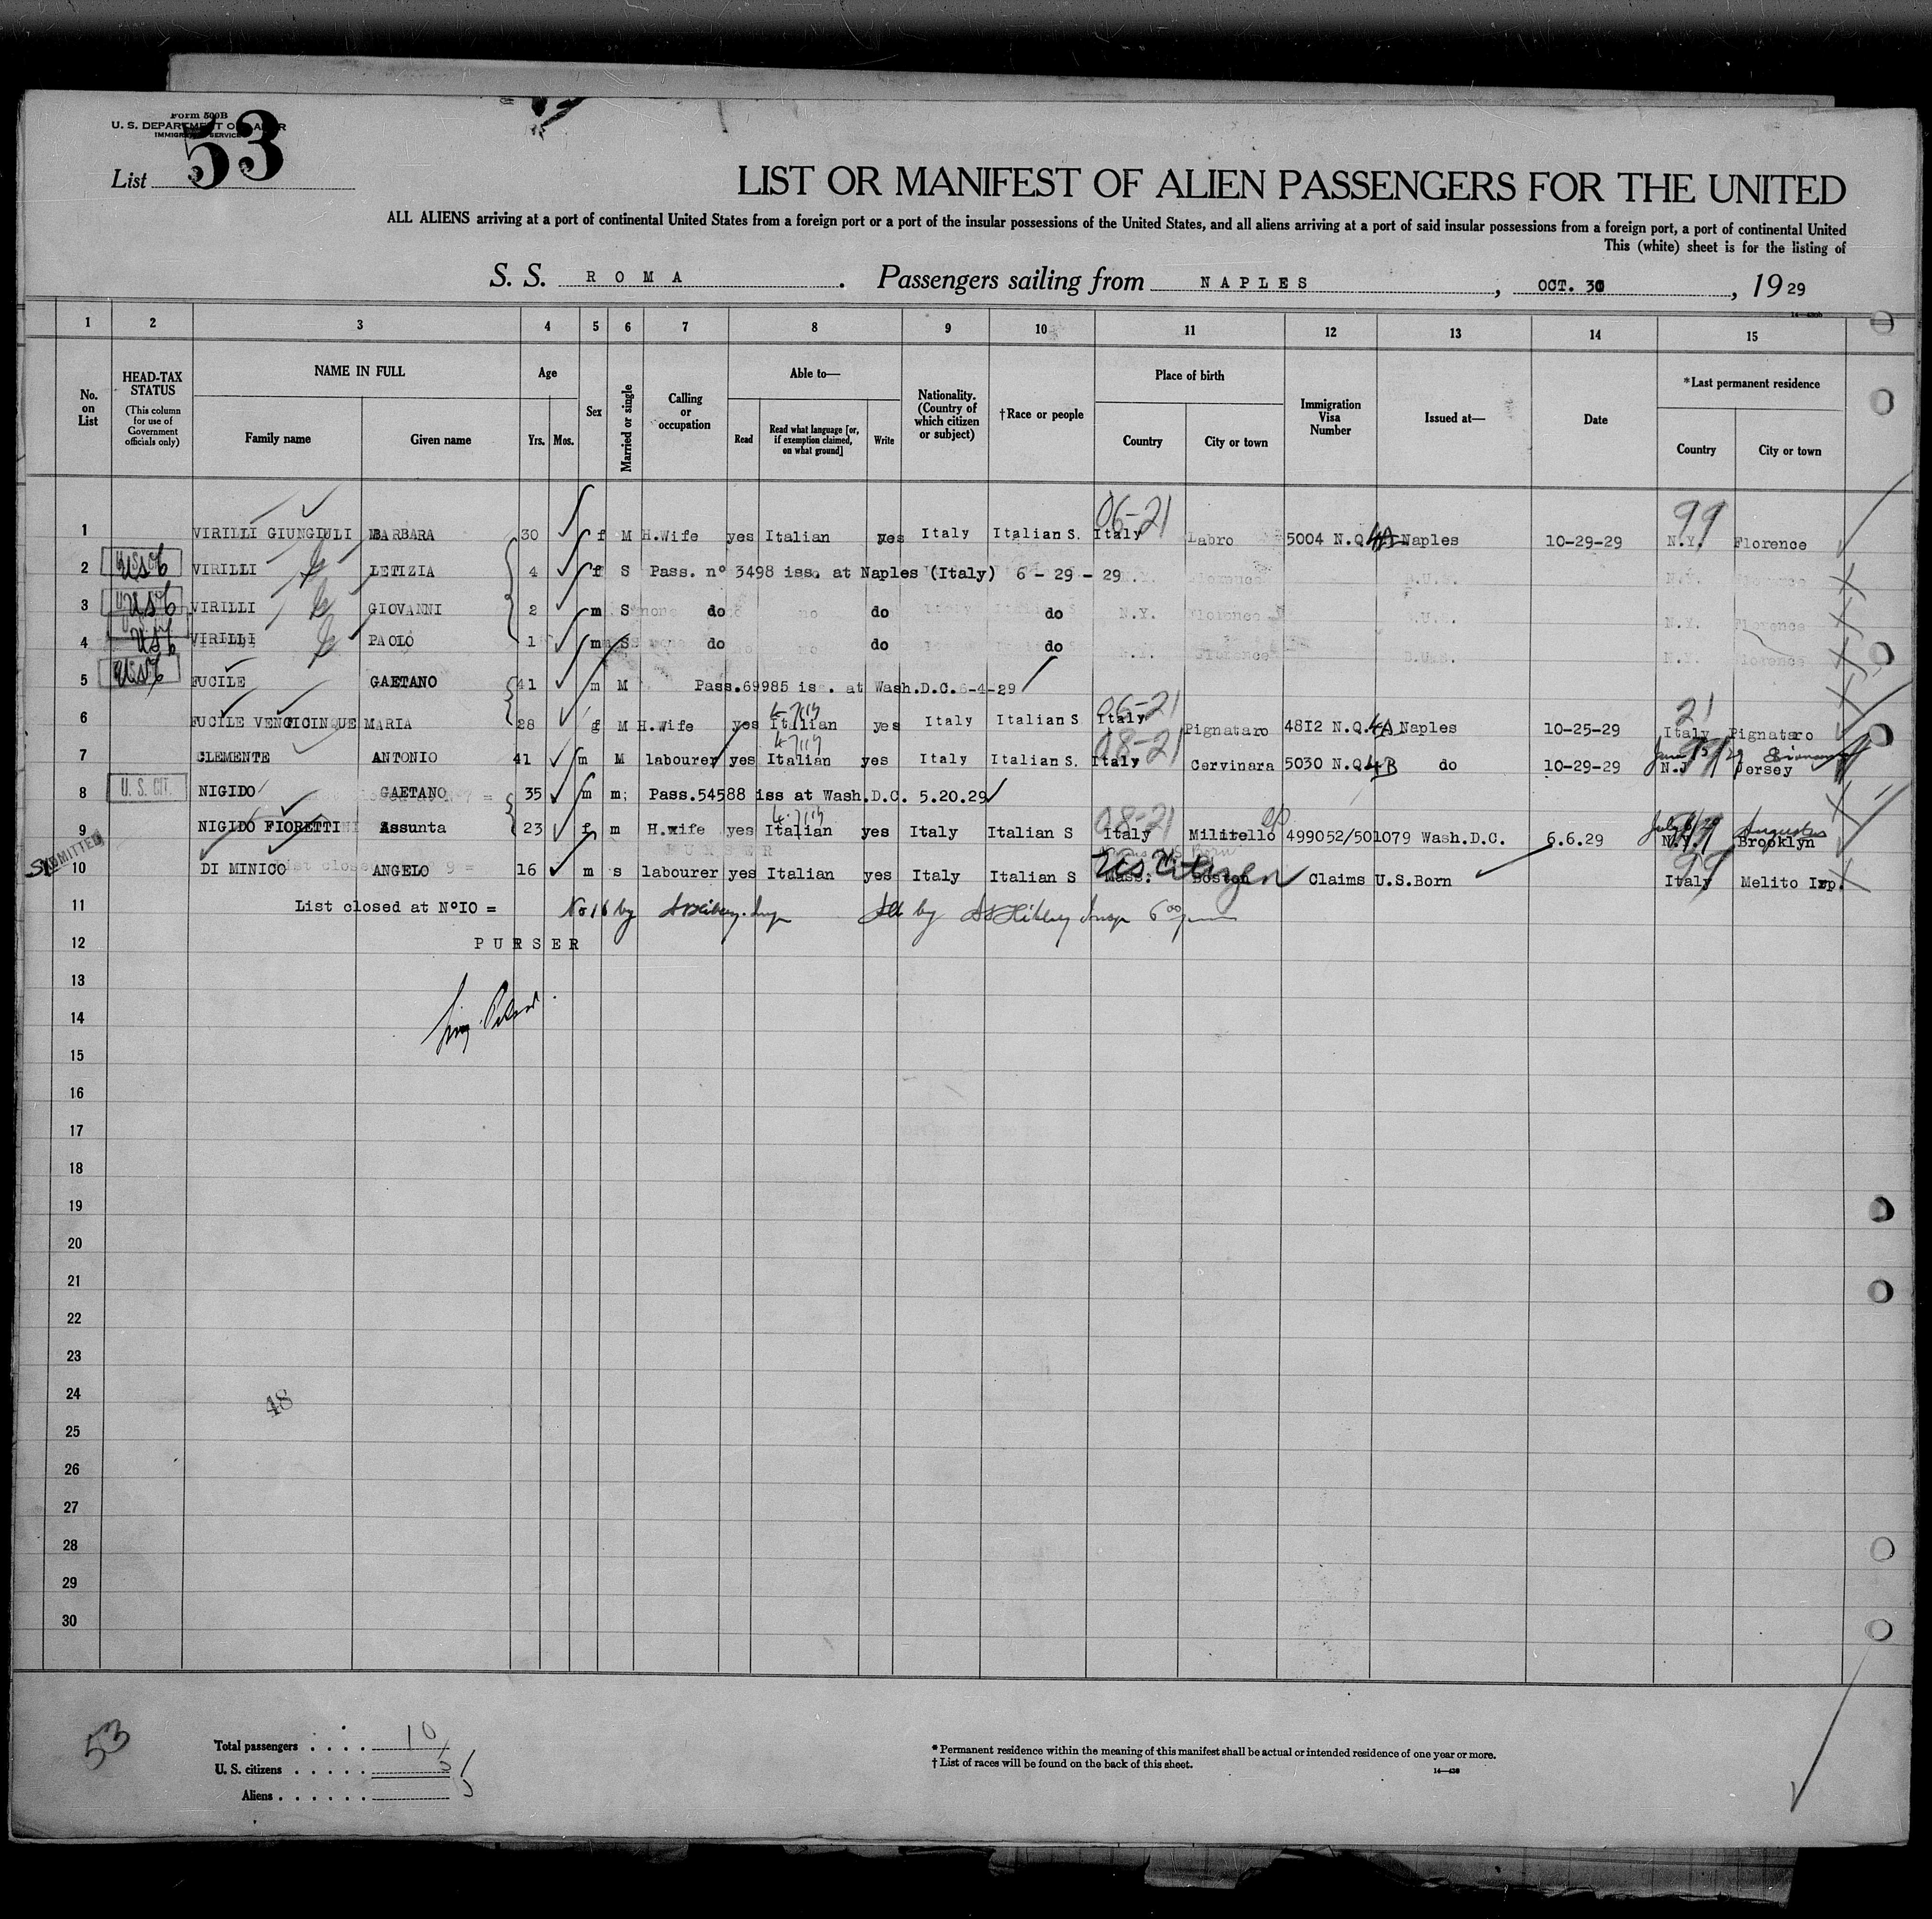 Form 500B
U. S. DEPARTMENT OF LABOR
IMMIGRATION SERVICE
List 53
LIST OR MANIFEST OF ALIEN PASSENGERS FOR THE UNITED
ALL ALIENS arriving at a port of continental United States from a foreign port or a port of the insular possessions of the United States, and all aliens arriving at a port of said insular possessions from a foreign port, a port of continental United
This (white) sheet is for the listing of
S. S. ROMA. Passengers sailing from NAPLES, OCT. 30, 1929
1 2 3 4 5 6 7 8 9 10 11 12 13 14 15
No. on List
HEAD-TAX STATUS
(This column for use of Government officials only)
NAME IN FULL
Family name
Given name
Age
Yrs. Mos.
Sex
Married or single
Calling or occupation
Able to—
Read
Read what language [or, if exemption claimed, on what ground]
Write
Nationality. (Country of which citizen or subject)
†Race or people
Place of birth
Country
City or town
Immigration Visa Number
Issued at—
Date
*Last permanent residence
Country
City or town
06-21 99
1 VIRILLI GIUNGIULI BARBARA 30 f M H.Wife yes Italian yes Italy Italian S. Italy Labro 5004 N.Q. Naples 10-29-29 N.Y. Florence
2 USC VIRILLI LETIZIA 4 f S Pass. n° 3498 iss. at Naples (Italy) 6 - 29 - 29
3 USC VIRILLI GIOVANNI 2 m S do do do
4 USC VIRILLI PAOLO 1 m S do do do
5 USC FUCILE GAETANO 41 m M Pass.69985 is . at Wash.D.C. 6-4-29
06-21 21
6 FUCILE VENCICINQUE MARIA 28 f M H.Wife yes Italian yes Italy Italian S Italy Pignataro 4812 N.Q. 4A Naples 10-25-29 Italy Pignataro
08-21
7 CLEMENTE ANTONIO 41 m M labourer yes Italian yes Italy Italian S. Italy Cervinara 5030 N.Q. 4B do 10-29-29 N.J Jersey
8 U. S. CIT. NIGIDO GAETANO 35 m m; Pass.54588 iss at Wash.D.C. 5.20.29
08-21
9 NIGIDO FIORETTI Assunta 23 f m H.wife yes Italian yes Italy Italian S Italy Militello 499052/501079 Wash.D.C. 6.6.29 N.Y. Brooklyn
ADMITTED
10 DI MINICO ANGELO 16 m s labourer yes Italian yes Italy Italian S Mass. Boston US Citizen Claims U.S.Born 99 Italy Melito Irp.
11 List closed at N°10 =
12 PURSER
13
14
15
16
17
18
19
20
21
22
23
24
48
25
26
27
28
29
30
53
Total passengers . . . . 10
U. S. citizens . . . . . 5
Aliens . . . . . . 5
* Permanent residence within the meaning of this manifest shall be actual or intended residence of one year or more.
† List of races will be found on the back of this sheet.